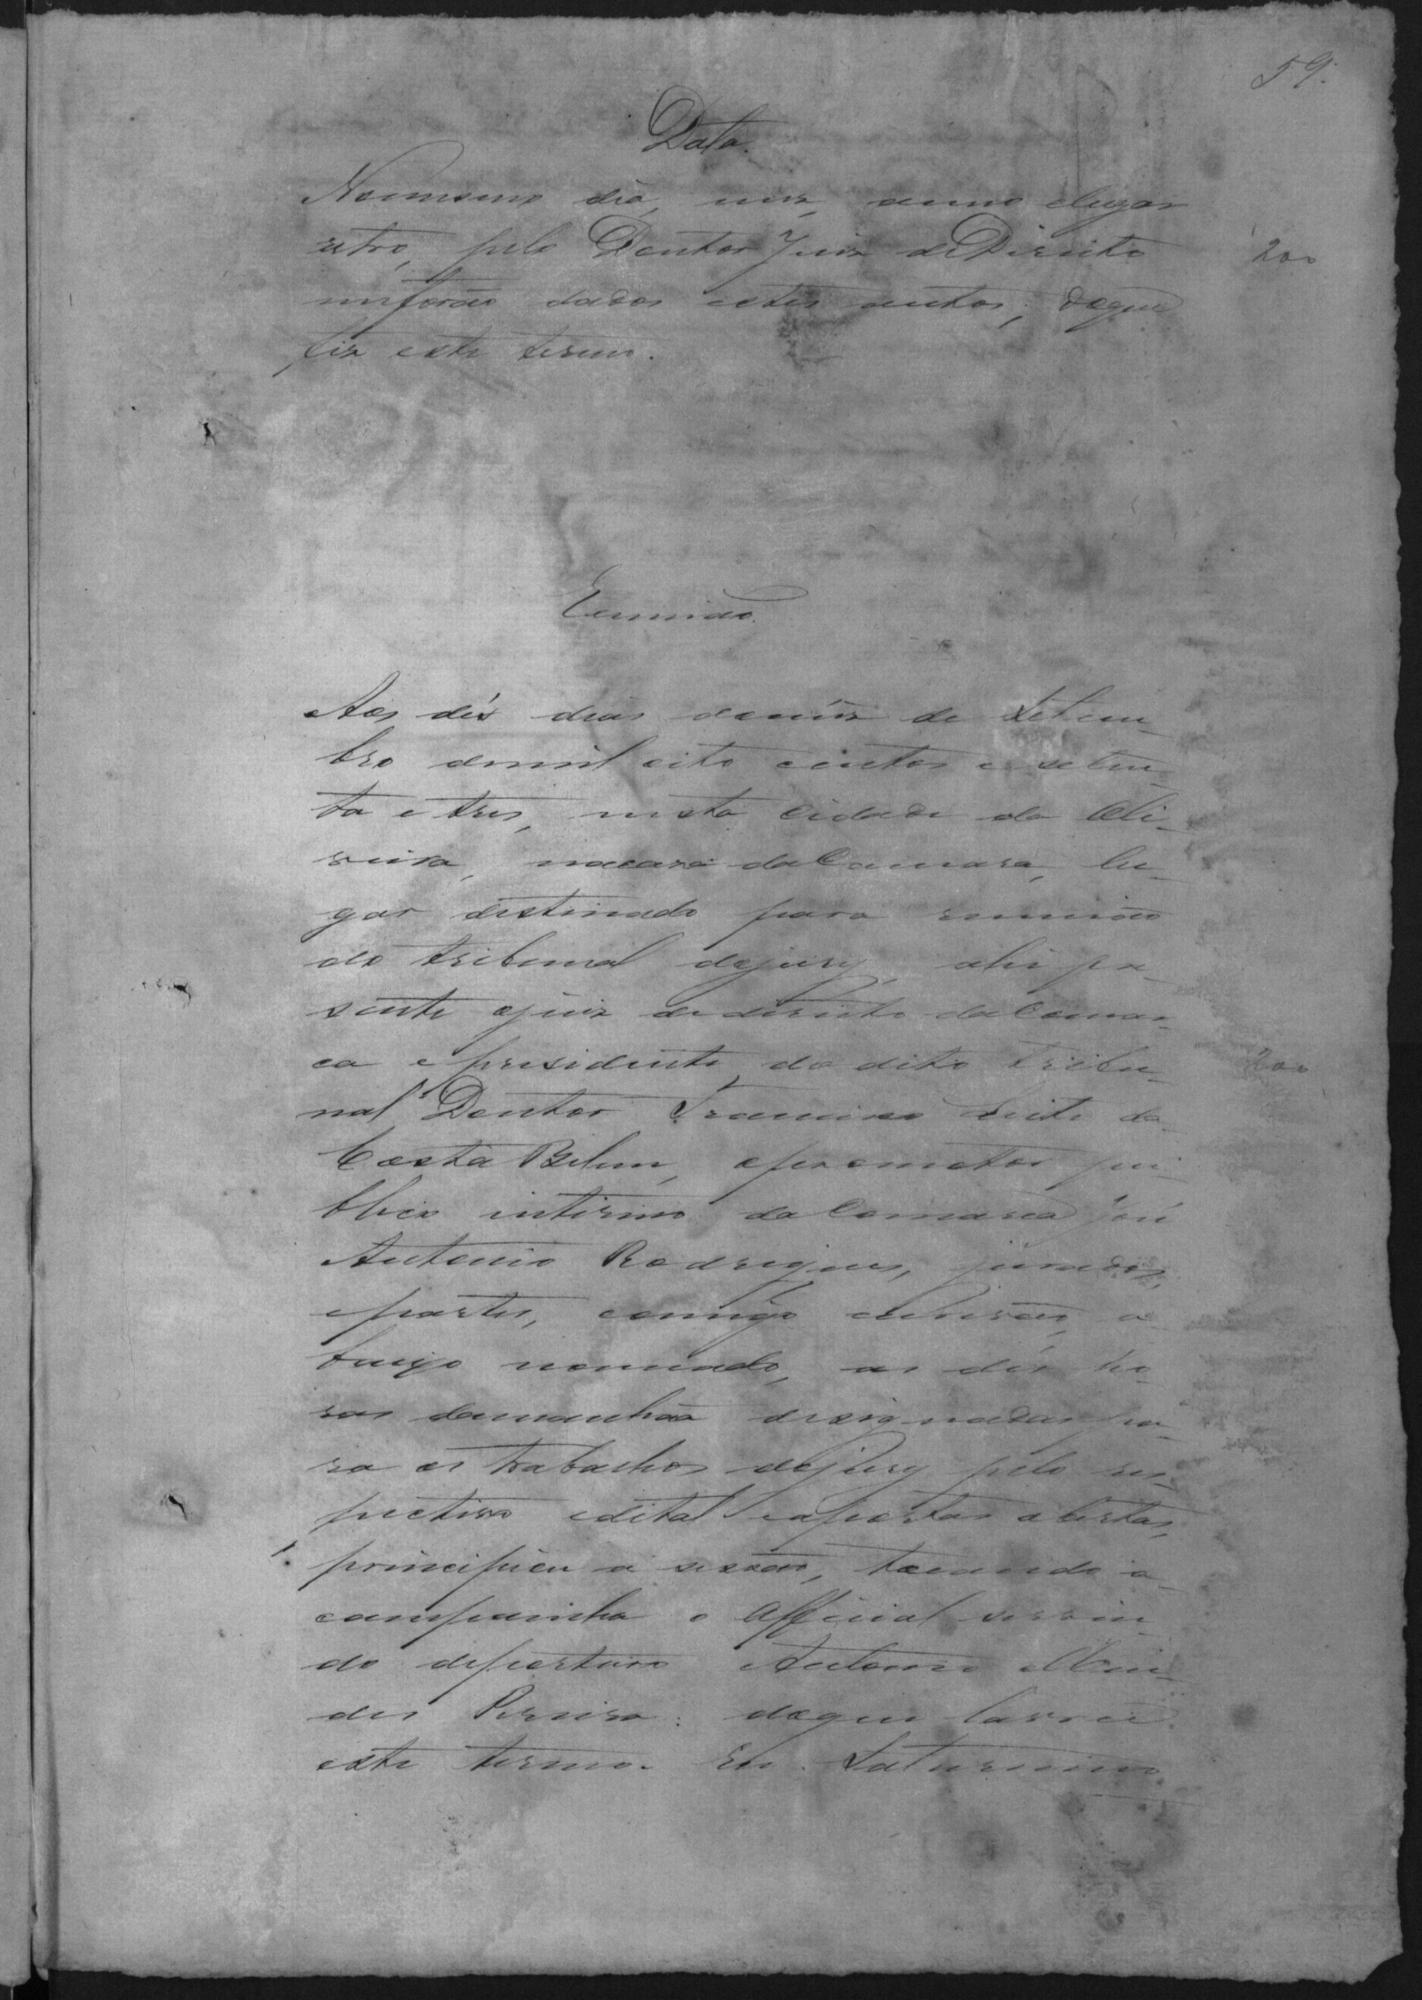 59.
Data.
Nomesmo dia, mez, anno elugar
retro, pelo Doutor Juiz deDireito
meforão dados estes autos; doque
fiz este termo.
200
Reunião.
Aos déz dias domêz de Setem-
bro demil oito centos e seten-
ta e tres, nesta Cidade da Oli-
veira, nacasa daCamara, lu-
gar destinado para reunião
do tribunal dojury, ahi pre-
sente ojuiz dedireito daComar-
ca epresidente do dito tribu-
200
nal Doutor Leite da
Costa Belem, opromotor pu-
blico interino daComarca José
Antonio Rodrigues, jurados,
epartes, comigo escrivão, a-
baixo nomeado, as déz ho-
ras damanhã designadas pa-
ra os trabalhos dojury pelo res-
pectivo edital eaportas abertas,
principiou a sessão, tocando a
campainha o Official servin-
do deporteiro Antonio Men-
des Pereira: doque lavrei
este termo. Eu Saturnino